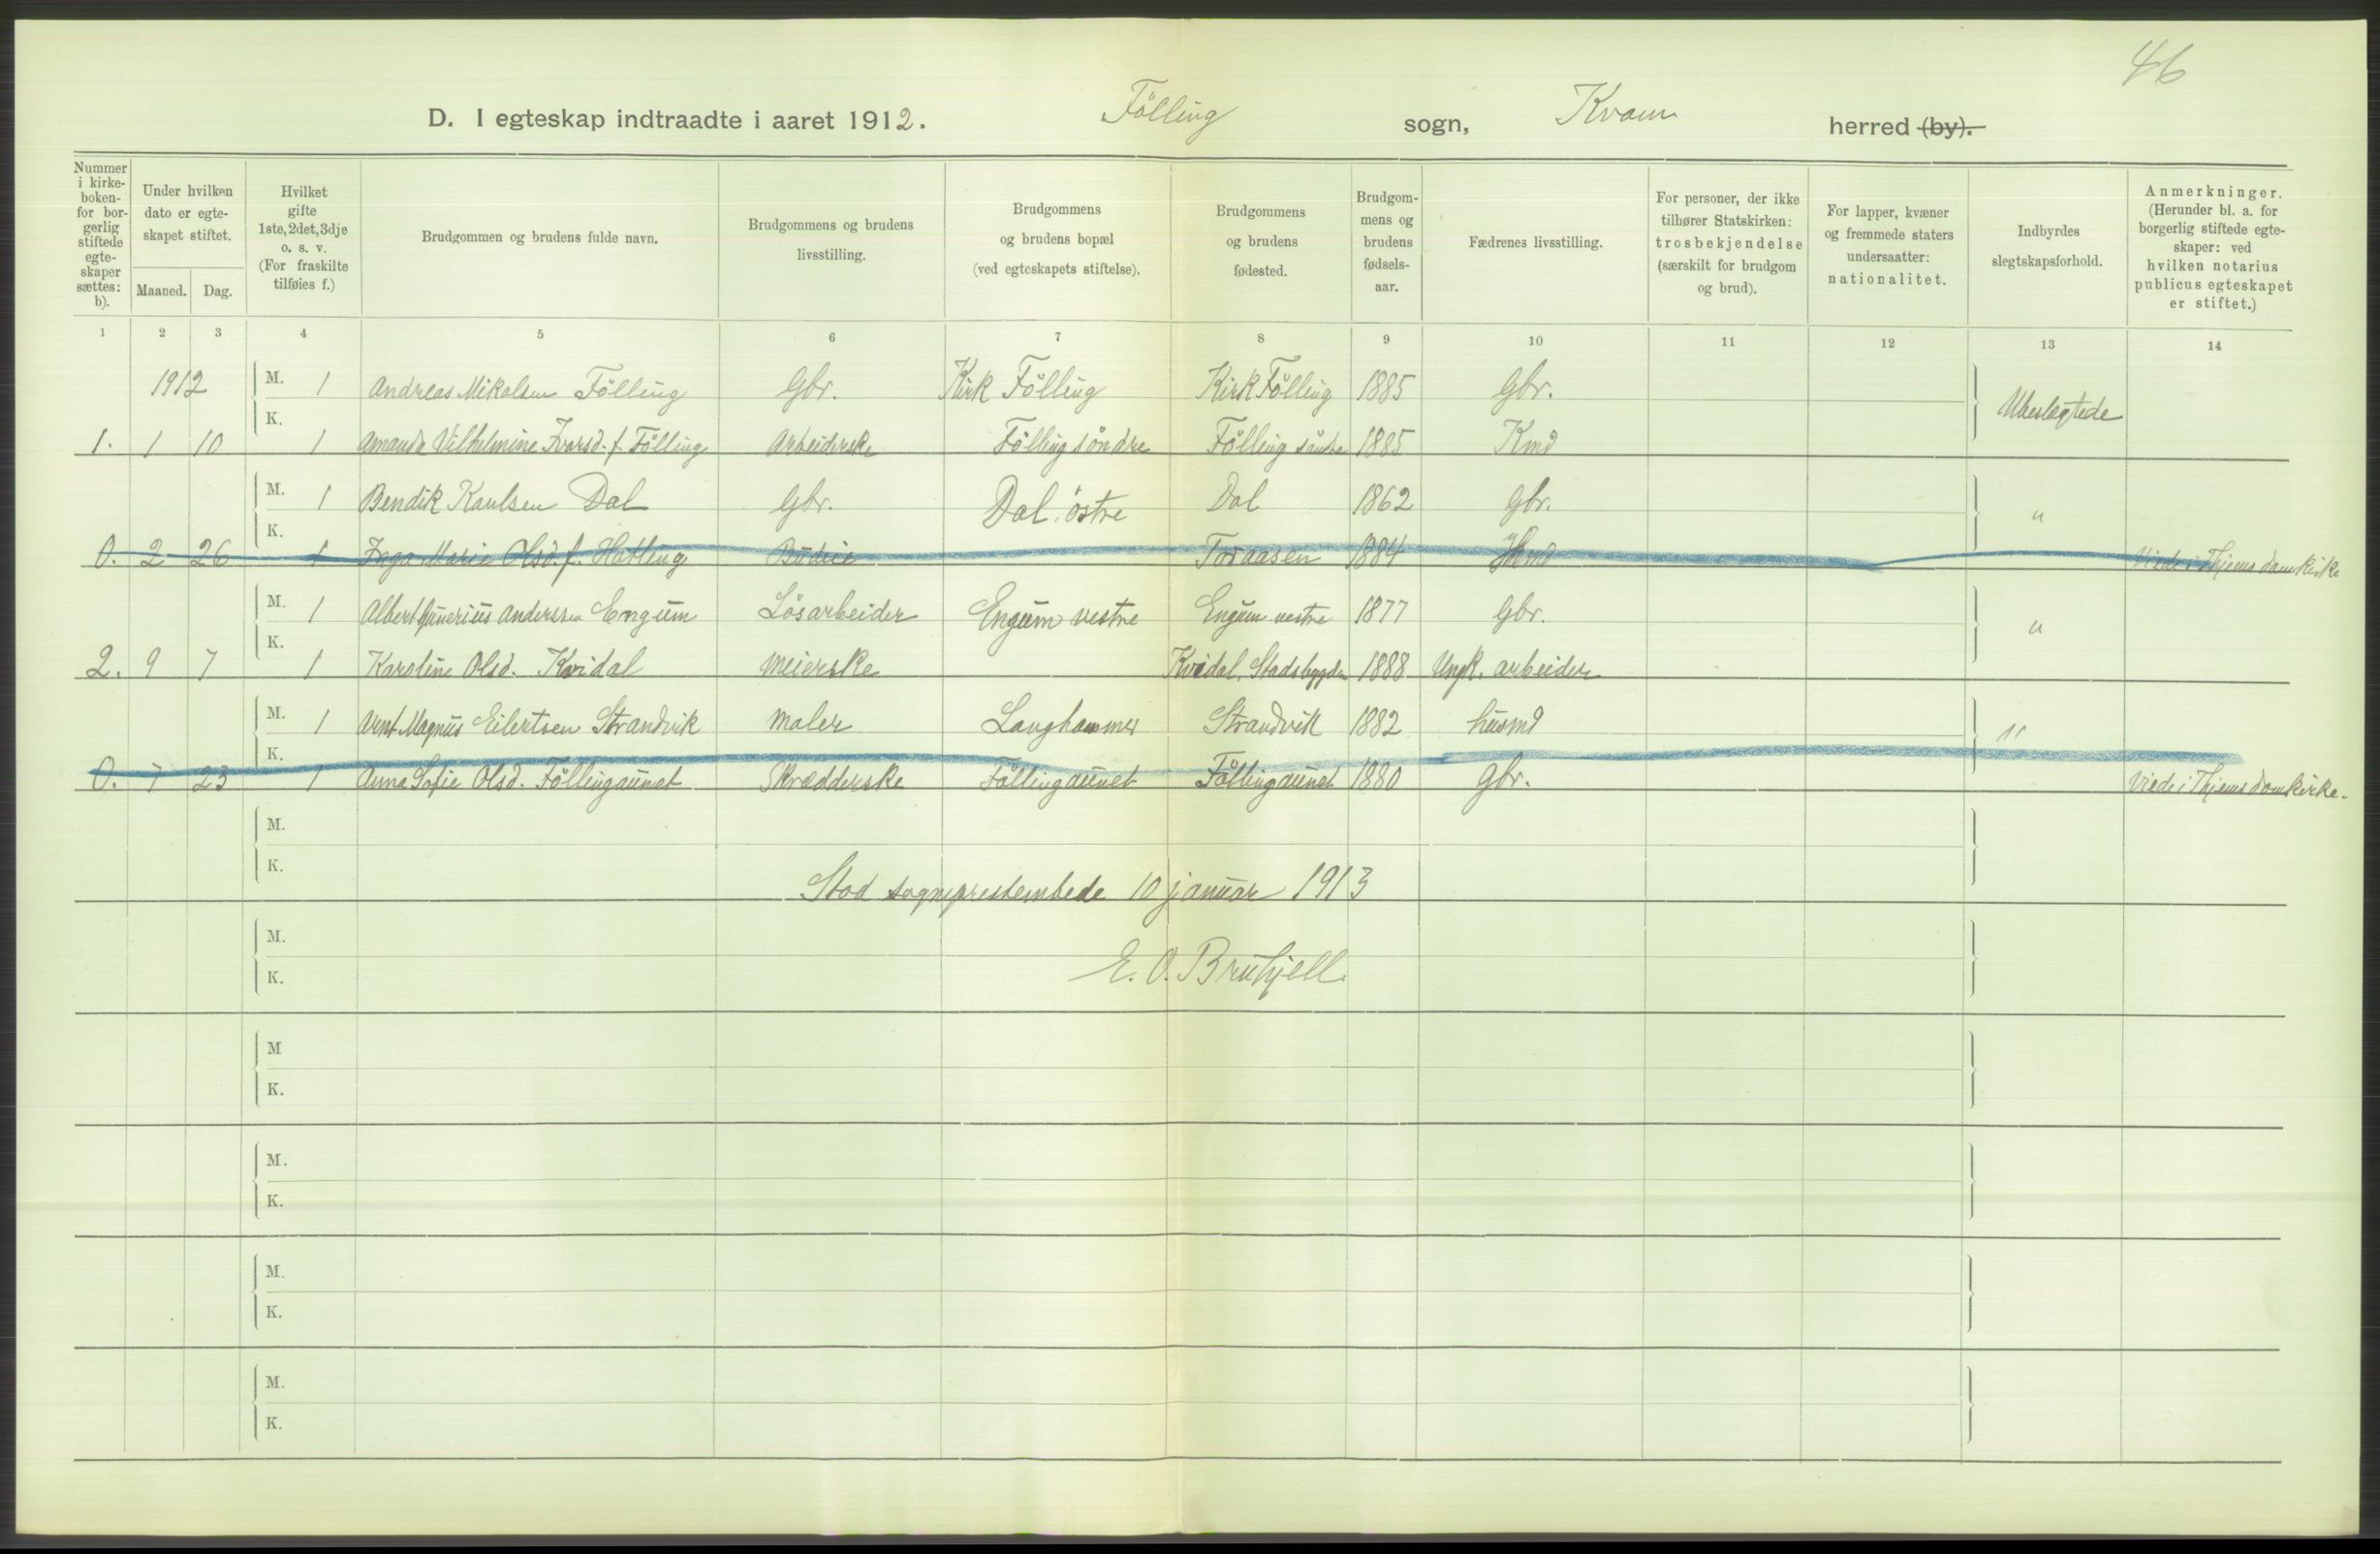 46
D. I egteskap indtraadte i aaret 1912. Fölling sogn, Kvam herred (by).
Nummer i kirkeboken for borgerlig stiftede egteskaper sættes: b). Under hvilken dato er egteskapet stiftet. Maaned. Dag. Hvilket gifte 1ste, 2det, 3dje o. s. v. (For fraskilte tilføies f.) Brudgommen og brudens fulde navn. Brudgommens og brudens livsstilling. Brudgommens og brudens bopæl (ved egteskapets stiftelse). Brudgommens og brudens fødested. Brudgommens og brudens fødselsaar. Fædrenes livsstilling. For personer, der ikke tilhører Statskirken: trosbekjendelse (særskilt for brudgom og brud). For lapper, kvæner og fremmede staters undersaatter: nationalitet. Indbyrdes slegtskapsforhold. Anmerkninger. (Herunder bl. a. for borgerlig stiftede egteskaper: ved hvilken notarius publicus egteskapet er stiftet.)
1 2 3 4 5 6 7 8 9 10 11 12 13 14
1912 M. 1 Andreas Mikalsen Fölling Gbr. Kirk Fölling Kirk Fölling 1885 Gbr. Ubeslegtede
1. 1 10 K. 1 Amanda Vilhelmine Ivarsd. f. Fölling Arbeiderske Fölling söndre Fölling söndre 1885 Kmd
M. 1 Bendik Paulsen Dal Gbr. Dal östre Dal 1862 Gbr. "
0. 2 26 K. 1 Inga Marie Olsd. f. Hatling Budeie Toraasen 1884 Hmd Viede i Thjems domkirke
M. 1 Albert Gunerius Anderssen Engum Lösarbeider Engum vestre Engum vestre 1877 Gbr. "
2. 9 7 K. 1 Karoline Olsd. Kvidal Meierske Kvidal, Stadsbygden 1888 Ungk. arbeider
M. 1 Arnt Magnus Eilertsen Strandvik Maler Langhammer Strandvik 1882 husmd "
0. 7 23 K. 1 Anna Sofie Olsd. Föllingaunet Skrædderske Föllingaunet Föllingaunet 1880 Gbr. Viede i Thjems domkirke.
M.
K.
Stod sogneprestembede 10 januar 1913
M.
E. O. Bruhjell.
K.
M
K.
M.
K.
M.
K.
M.
K.